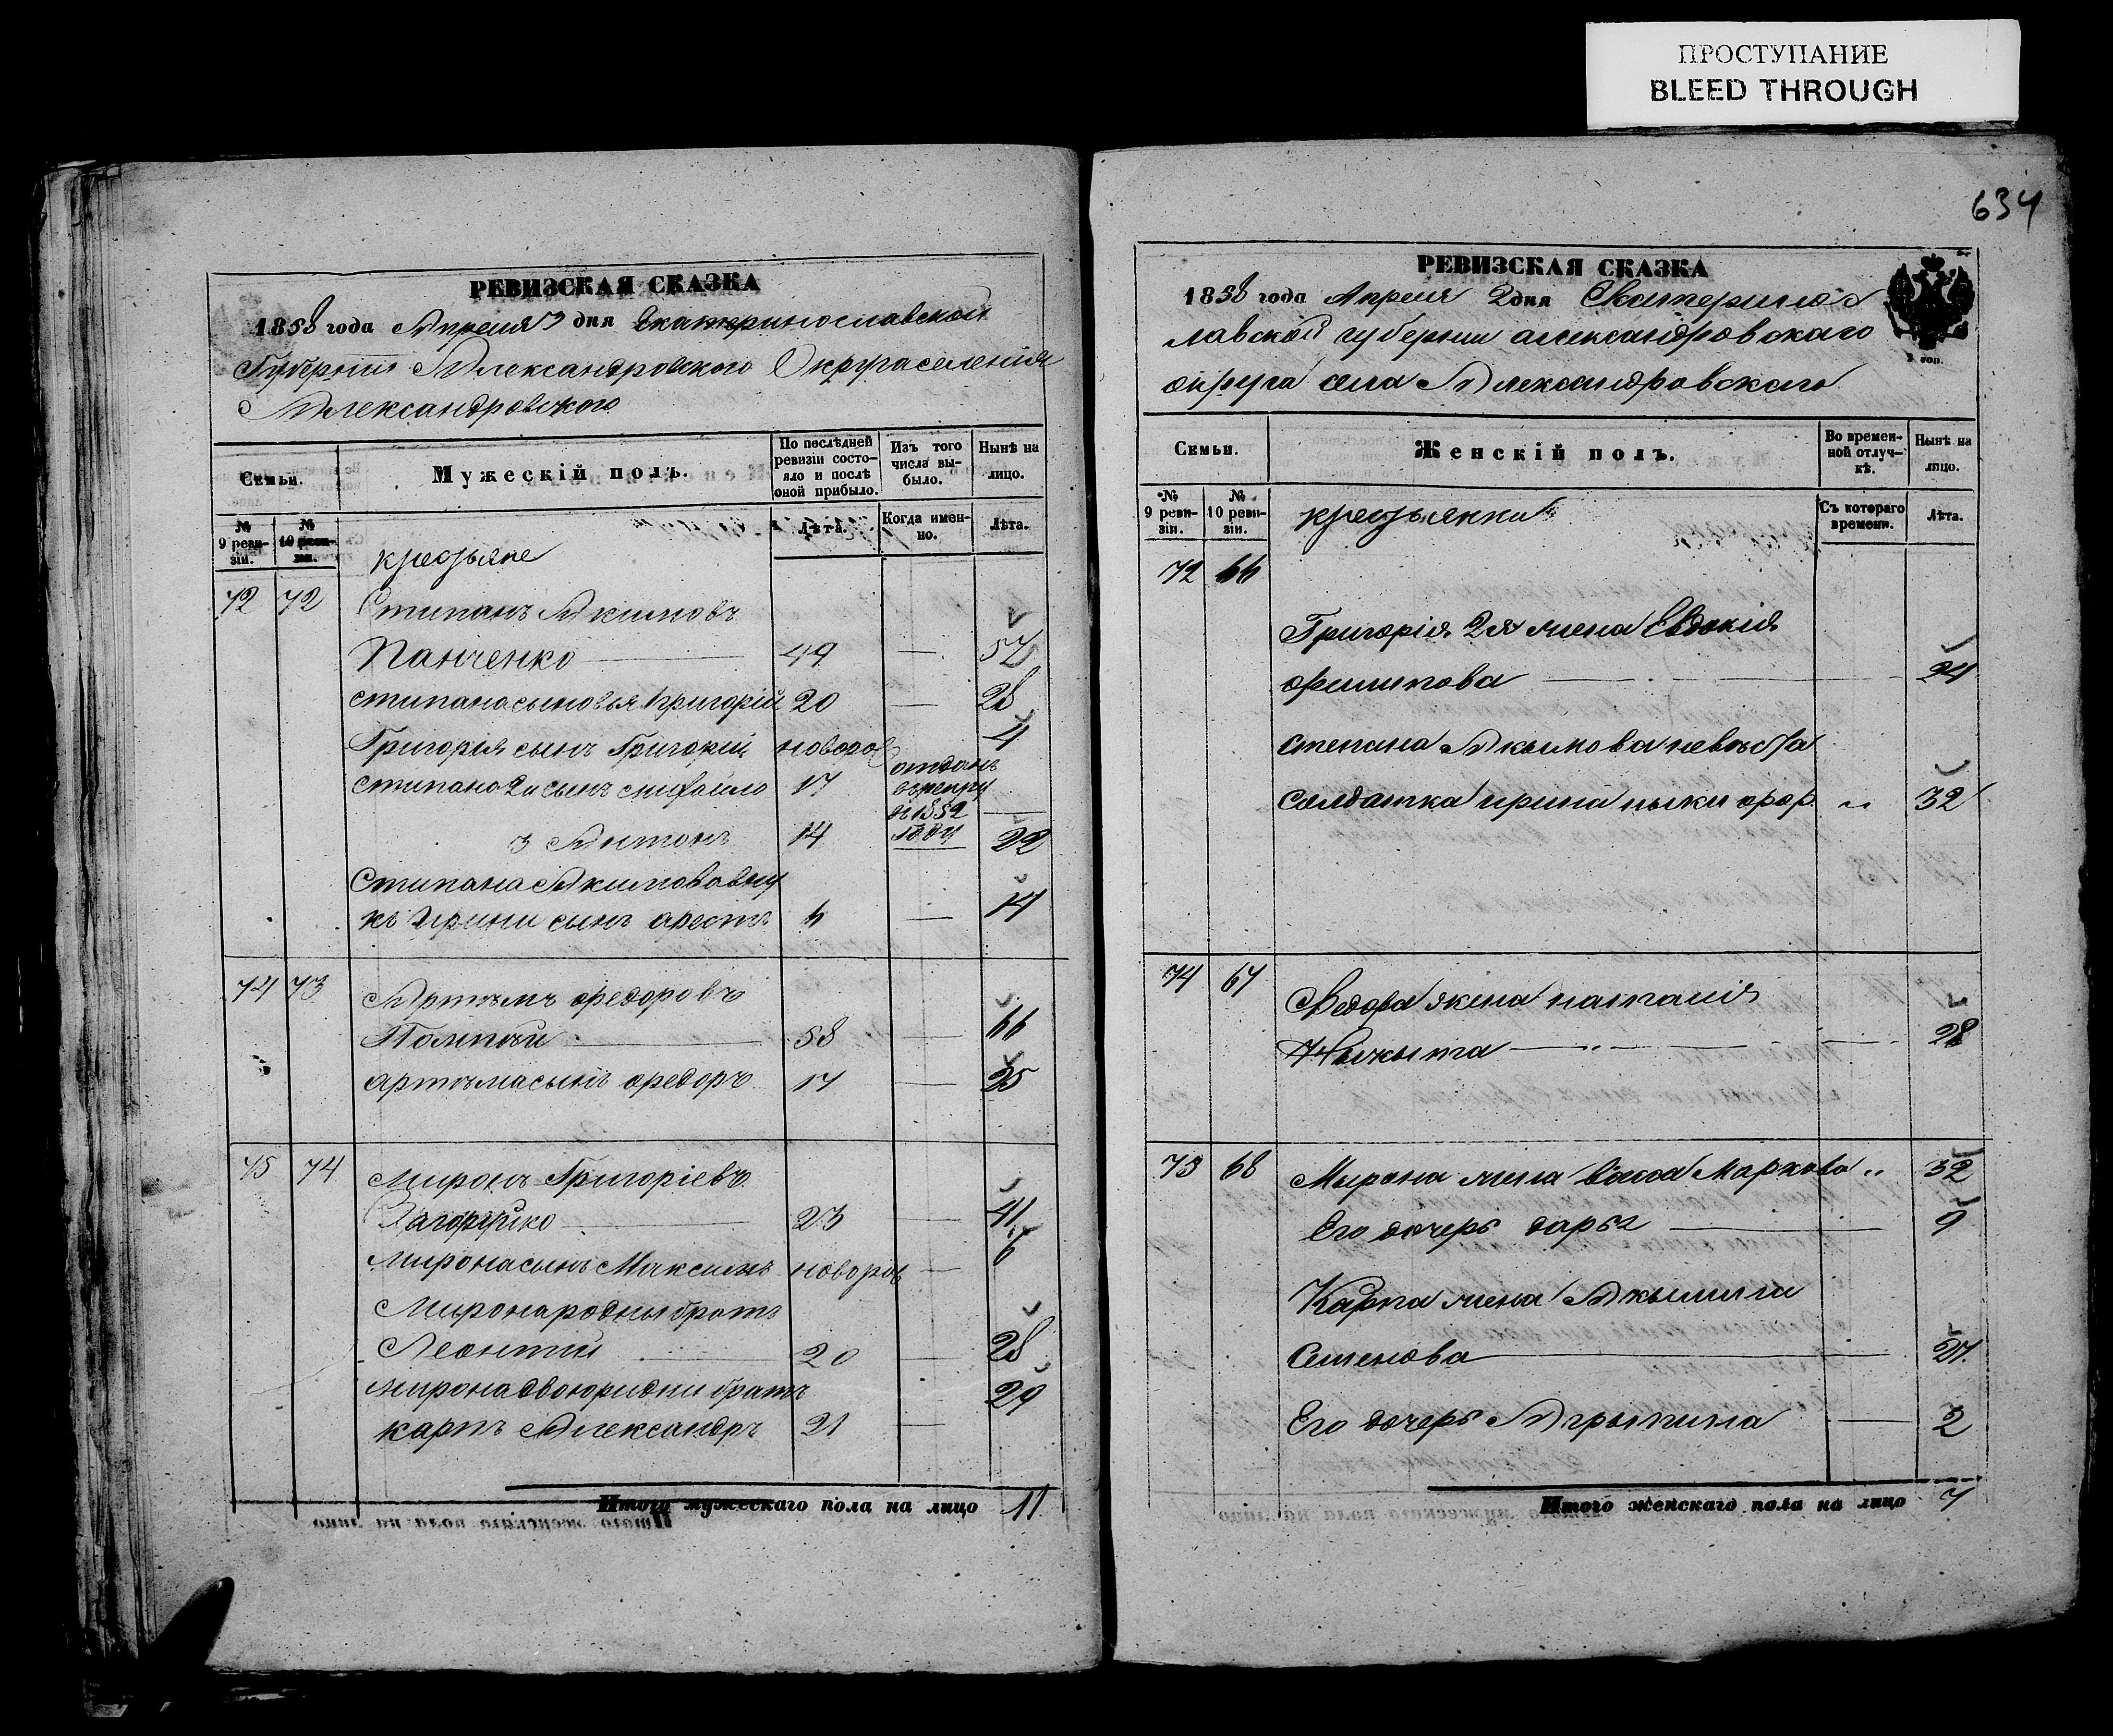 ПРОСТУПАНИЕ
BLEED THROUGH
634
РЕВИЗСКАЯ СКАЗКА
1858 года Апреля 3 дня Екатеринославской
Губернии Александровского Округа селения
Александровского
Семьи.
Мужескій полъ.
По послѣдней ревизіи состояло и послѣ оной прибыло.
Изъ того числа выбыло.
Нынѣ на лицо.
№ 9 ревизіи.
№ 10 ревизіи.
Лѣта.
Когда именно.
Лѣта.
крестьяне
72 72 Стипанъ Акимовъ
Панченко 49 — 57
стипана сыновья Григорій 20 — 28
Григорія сынъ Григорій новорож 4
стипана 2й сынъ михайло 17 отданъ
врекруты
в 1852
году
3 Антонъ 14 22
Стипана Акимова вну
къ Ирини сынъ арестъ 6 — 14
74 73 Артъемъ Федоровъ
58 — 66
артъема сынъ Федоръ 17 — 25
75 74 Миронъ Григоріевъ
23 — 41
Мирона сынъ Максимъ новорож — 6
Мирона родный братъ
Леонтии 20 — 28
мирона двоюридни братъ
карпъ Александръ 21 — 29
Итого мужескаго пола на лицо 11
РЕВИЗСКАЯ СКАЗКА
1858 года Апреля 2 дня Екатеринос
лавской губернии александровскаго
округа села Александровскаго
Семьи.
Женскій полъ.
Во временной отлучкѣ.
Нынѣ на лицо.
№ 9 ревизіи.
№ 10 ревизіи.
Съ котораго времени.
Лѣта.
крестьянки
72 66
Григорія 2я жена Евдокія
филипова — 24
степана Акымова невѣста
Солдатка ирина 32
74 67 Федора жена наталія
— 28
75 68 Мырона жена Васса Маркова 32
Его дочерь дарья — 9
Карпа жена Акылина
Семенова — 27
Его дочерь Агрыпина — 2
Итого женскаго пола на лицо 7